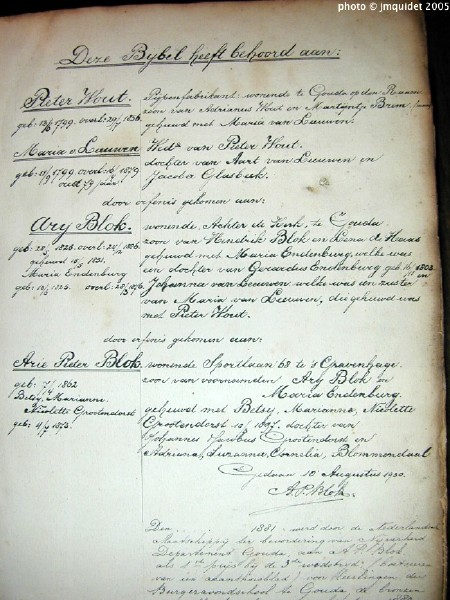 photo © jmquidet 2005
Deze Bybel heeft behoord aan:
Pieter Wout. Pijpenfabrikant: wonende te Gouda op den Raam
zoon van Adrianus Wout en Martijntje Brem
geb: 13/6 1799. overl: 1856. gehuwd met Maria van Leeuwen:
Maria v. Leeuwen Wed: van Pieter Wout.
geb: 1799 overl: 1879 dochter van Aart van Leeuwen en
oud 79 jaar. Jacoba Glasbeek.
door erfenis gekomen aan:
Ary Blok. wonende, Achter de Kerk, te Gouda.
geb: 1828. overl: 1886. zoon van Hendrik Blok en Lena de Haas
gehuwd 1851. gehuwd met Maria Endenburg, welke was
Maria Endenburg een dochter van Gerardus Endenburg geb: 1803 en
geb: 1823. overl: Johanna van Leeuwen, welke was een zuster
van Maria van Leeuwen, die gehuwd was
met Pieter Wout.
door erfenis gekomen aan:
Arie Pieter Blok. wonende Sportlaan 68 te 's Gravenhage.
geb: 7/1 1862 zoon van voornoemden Ary Blok en
Betsy, Marianne, Maria Endenburg.
Nicolette Grootendorst gehuwd met Betsy, Marianna, Nicolette
geb: 4/7 1873. Grootendorst 1897. dochter van
Johannes Jacobus Grootendorst en
Adriana, Suzanna, Cornelia, Blommendaal
Gedaan 10 Augustus 1930.
A.P. Blok.
1881 werd door de Nederlandsche
Maatschappij ter bevordering van Nijverheid
Departement Gouda, aan A P Blok
als 1ste prijs bij de 3de wedstrijd
van een voor leerlingen der
Burgeravondschool te Gouda de bronzen